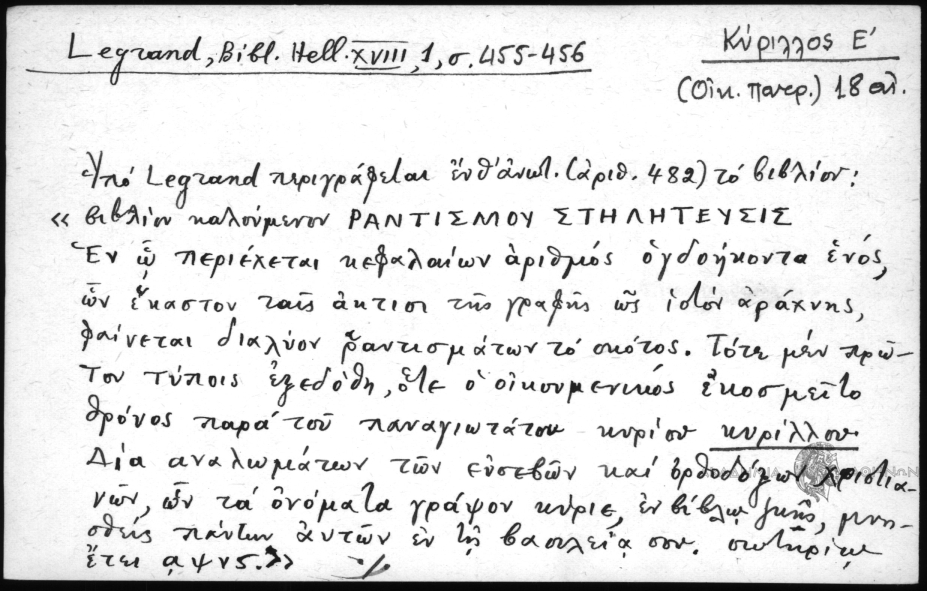 Legrand, Bibl. Hell. XVIII, 1, σ. 455-456
Κύριλλος Ε'
(Οἰκ. πατρ.) 18 αἰ.
Ὑπό Legrand περιγράφεται ἐνθ' ἀνωτ. (ἀριθ. 482) τό βιβλίον:
« βιβλίον καλούμενον ΡΑΝΤΙΣΜΟΥ ΣΤΗΛΗΤΕΥΣΙΣ
Ἐν ᾧ περιέχεται κεφαλαίων ἀριθμός ὀγδοήκοντα ἑνός,
ὧν ἕκαστον ταῖς ἀκτῖσι τῆς γραφῆς ὡς ἱστόν ἀράχνης,
φαίνεται διαλύον ῥαντισμάτων τό σκότος. Τότε μέν πρῶ-
τον τύποις ἐξεδόθη, ὅτε ὁ οἰκουμενικός ἐκοσμεῖτο
θρόνος παρά τοῦ παναγιωτάτου κυρίου κυρίλλου.
Διά αναλωμάτων τῶν εὐσεβῶν καί ὀρθοδόξων χριστια-
νῶν, ὧν τά ὀνόματα γράψον κύριε, ἐν βίβλῳ ζωῆς, μνη-
σθείς πάντων ἀυτῶν ἐν τῇ βασιλείᾳ σου. σωτηρίῳ
ἔτει αψνς.»